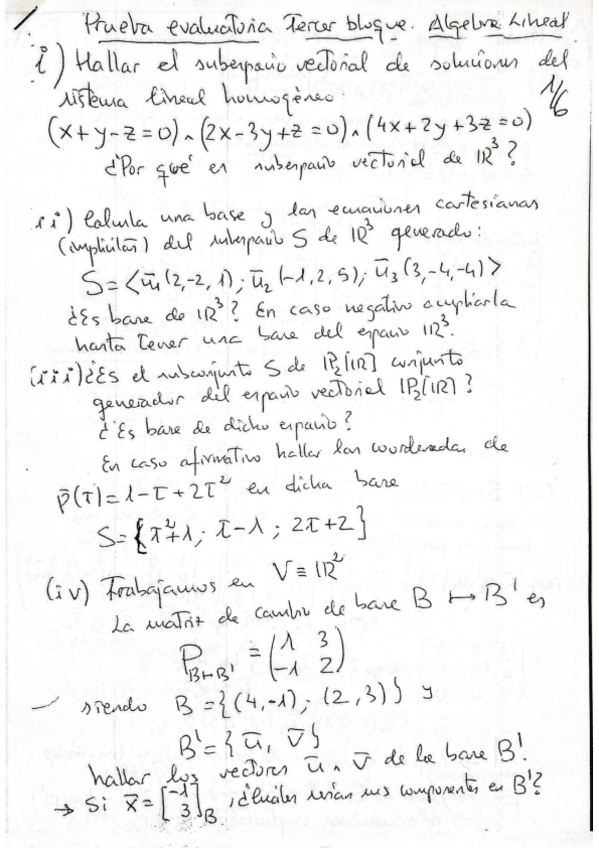 Prueba evaluatoria Tercer bloque. Algebra Lineal
i) Hallar el subespacio vectorial de soluciones del
1/6
sistema lineal homogéneo:
(x+y-z=0) ∧ (2x-3y+z=0) ∧ (4x+2y+3z=0)
¿Por qué es subespacio vectorial de ℝ³?
ii) Calcula una base y las ecuaciones cartesianas
(implícitas) del subespacio S de ℝ³ generado:
S=<ū₁(2,-2,1); ū₂(-1,2,5); ū₃(3,-4,-4)>
¿Es base de ℝ³? En caso negativo ampliarla
hasta tener una base del espacio ℝ³.
(iii) ¿Es el subconjunto S de ℙ₂[ℝ] conjunto
generador del espacio vectorial ℙ₂[ℝ]?
¿Es base de dicho espacio?
En caso afirmativo hallar las coordenadas de
p̄(t)=1-t+2t² en dicha base
S={t²+1; t-1; 2t+2}
(iv) Trabajamos en V≡ℝ²
La matriz de cambio de base B ↦ B' es
P B↦B' = (1 3
-1 2)
siendo B={(4,-1), (2,3)} y
B'={ū, v̄}
hallar los vectores ū y v̄ de la base B'.
→ Si x̄=[-1 3]B, ¿cuáles serían sus componentes en B'?